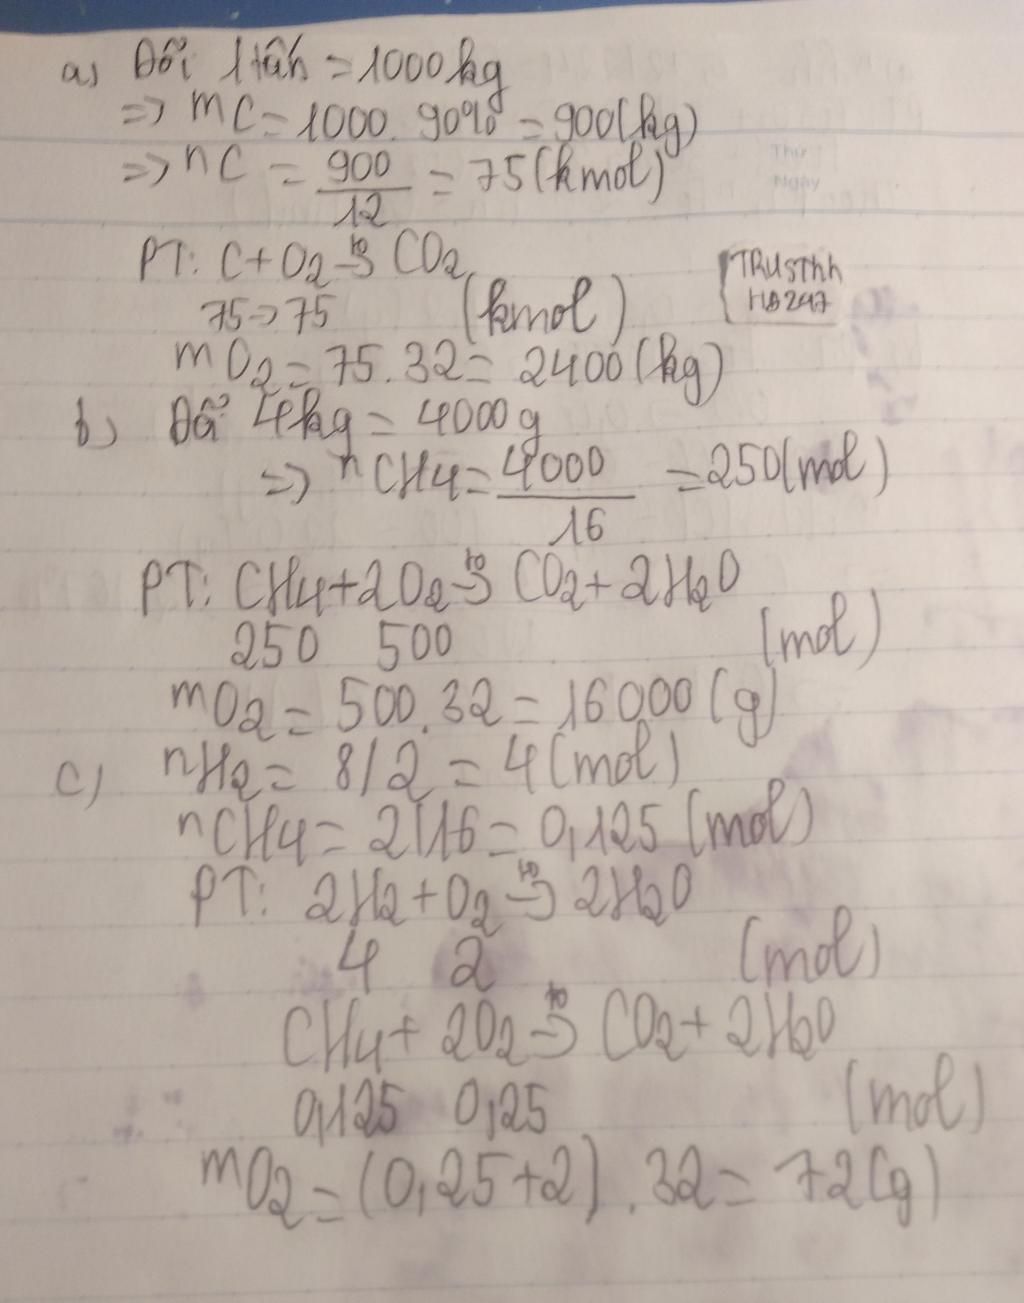 a) Đổi 1 tấn = 1000 kg
=> mC = 1000. 90% = 900(kg)
=> nC = 900/12 = 75 (kmol)
Thứ
Ngày
PT: C + O2 t0→ CO2
75 -> 75 (kmol)
TRUSThh
HB247
mO2 = 75.32 = 2400 (kg)
b) Đổi 4kg = 4000g
=> nCH4 = 4000/16 = 250(mol)
PT: CH4 + 2O2 t0→ CO2 + 2H2O
250 500 (mol)
mO2 = 500.32 = 16000 (g)
c) nH2 = 8/2 = 4 (mol)
nCH4 = 2/16 = 0,125 (mol)
PT: 2H2 + O2 t0→ 2H2O
4 2 (mol)
CH4 + 2O2 t0→ CO2 + 2H2O
0,125 0,25 (mol)
mO2 = (0,25+2) . 32 = 72(g)